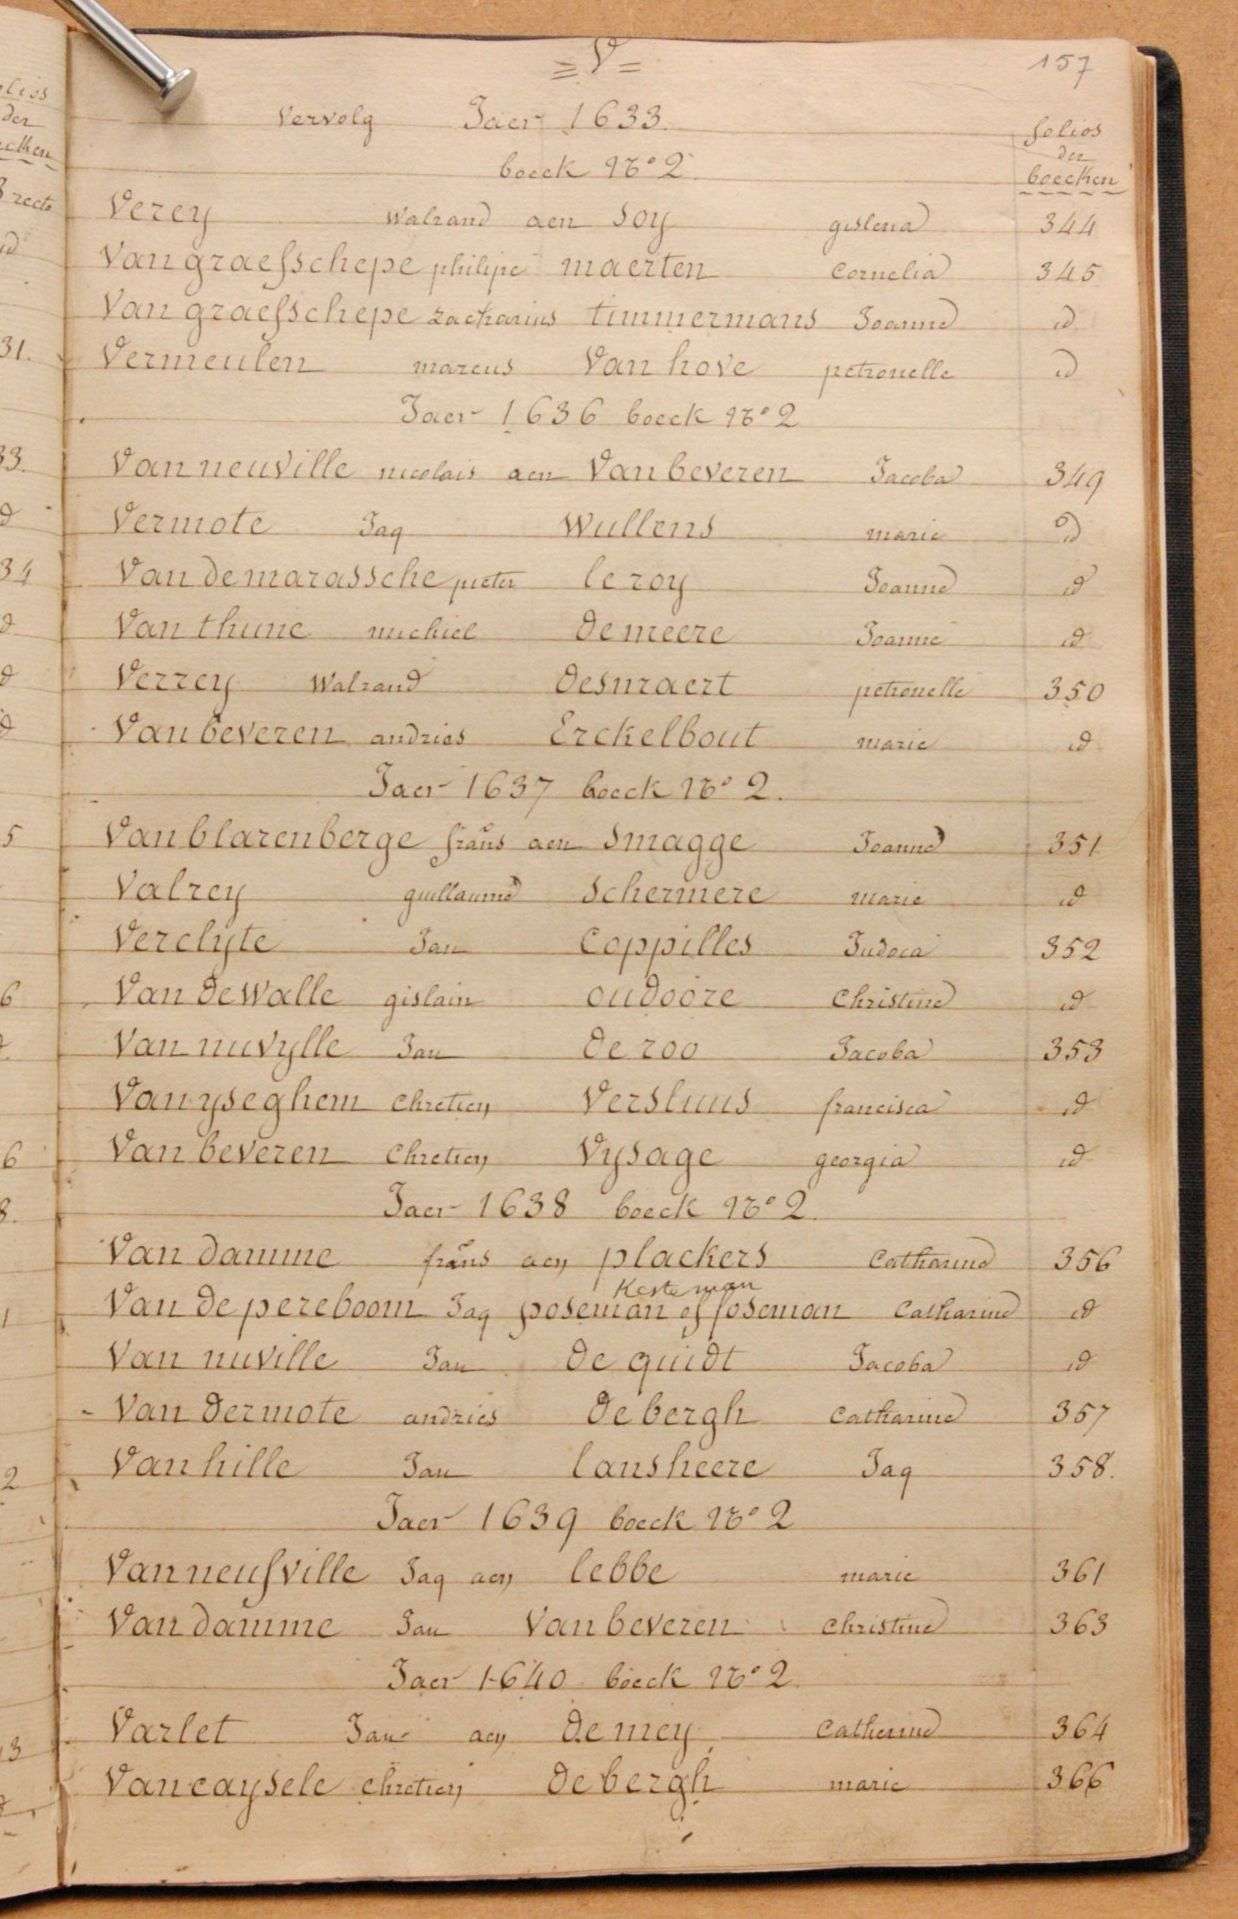 V
157
Vervolg Jaer 1633.
folios
der
boecken
boeck No 2
Verey Walrand aen Soy gislena 344
Vangraefschepe philipe maerten Cornelia 345
Van graefschepe zacharius timmermans Joanne id
Vermeulen marcus Van hove petronelle id
Jaer 1636 boeck No 2
Van neuville nicolais aen Van beveren Jacoba 349
Vermote Jaq Wullens marie id
Van demarassche pieter le roy Joanne id
Van thune michiel de meere Joanne id
Verrey Walrand desmraert petronelle 350
Van beveren andries Erckelbout marie id
Jaer 1637 boeck No 2.
Van blarenberge frans aen Smagge Joanne 351
Valrey guillaume Schermere marie id
Verclyte Jan Coppilles Judoca 352
Van de Walle gislain oudoore Christine id
Van nuvylle Jan de roo Jacoba 353
Van yseghem Chretien Versluus francisca id
Van beveren Chretien Vysage georgia id
Jaer 1638 boeck No 2.
Van damme frans aen plackers Catharine 356
Kesteman
Van de pereboom Jaq poseman of foseman Catharine id
Van nuville Jan de quidt Jacoba id
- Van dermote andries de bergh Catharine 357
Van hille Jan lansheere Jaq 358.
Jaer 1639 boeck No 2
Van neufville Jaq aen lebbe marie 361
Van damme Jan Van beveren Christine 363
Jaer 1640 boeck No 2.
Varlet Jan aen de mey Catherine 364
Van caysele Chretien de bergh marie 366